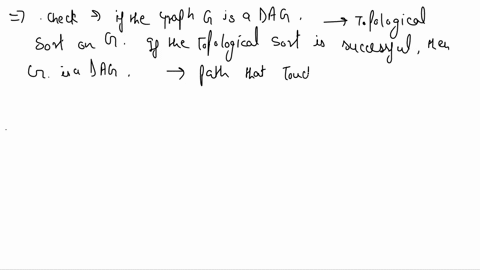 => . check => if the graph G is a DAG. → Topological
Sort on G. If the Topological Sort is successful, then
G. is a DAG. → path that Touc